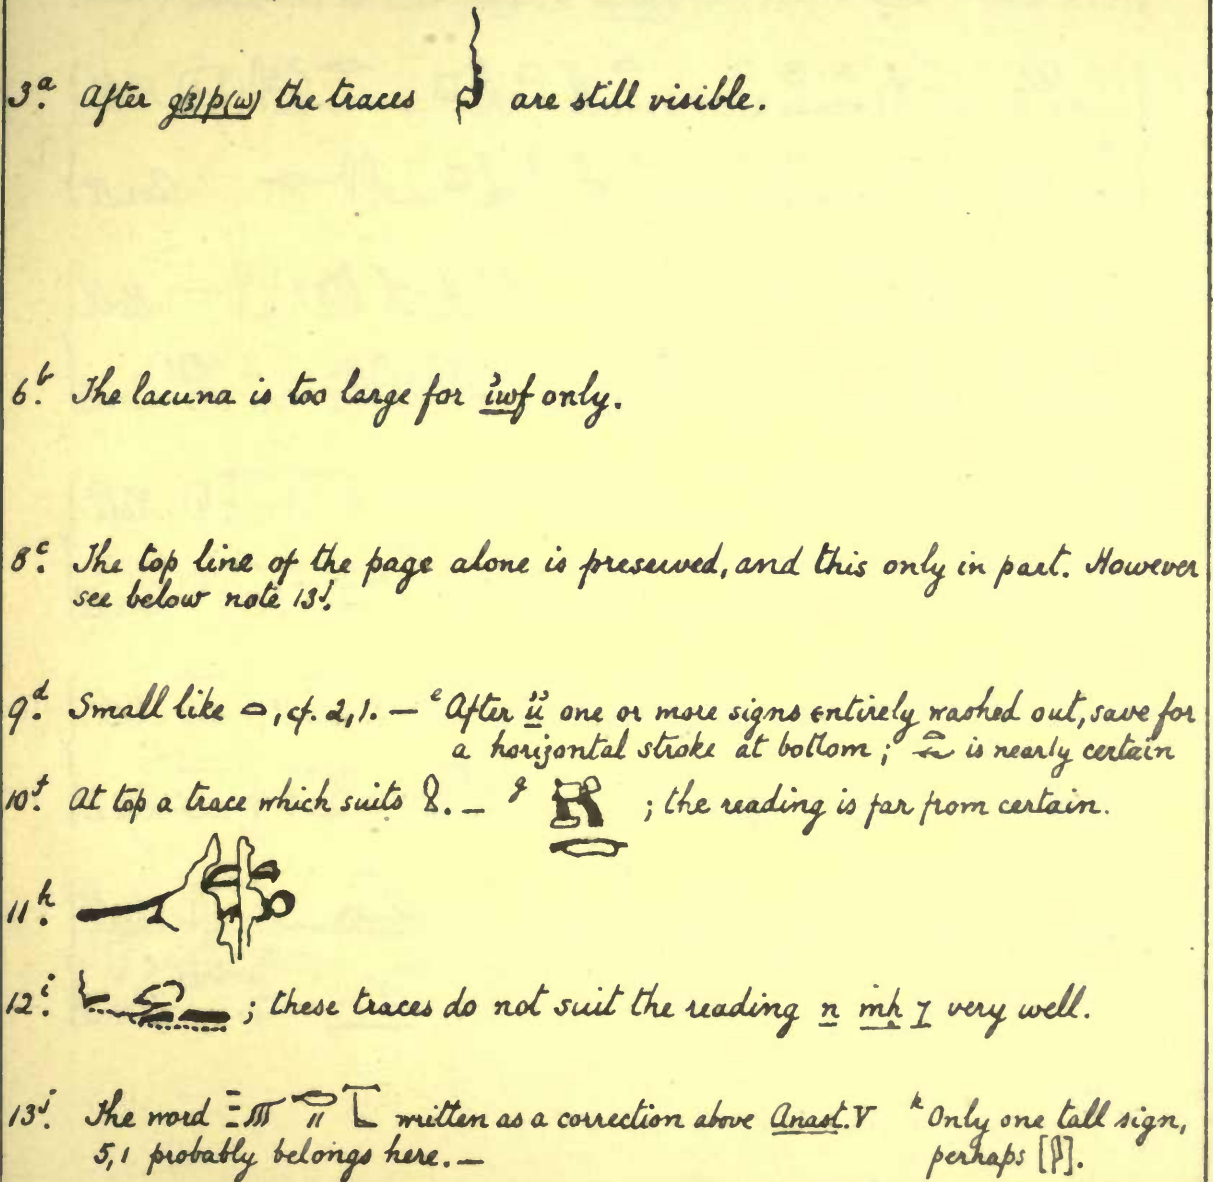 3.ᵃ After g(ꜣ)p(w) the traces are still visible.
6.ᵇ The lacuna is too large for i҆wf only.
8.ᶜ The top line of the page alone is preserved, and this only in part. However
see below note 13ʲ.
9.ᵈ Small like 𓏏, cf. 2,1. — ᵉ After i҆i҆ one or more signs entirely washed out, save for
a horizontal stroke at bottom; is nearly certain
10.ᶠ At top a trace which suits 𓎛. — ᵍ ; the reading is far from certain.
11.ʰ
12.ⁱ ; these traces do not suit the reading n mḥ 7 very well.
13.ʲ The word written as a correction above Anast. V ᵏ Only one tall sign,
5,1 probably belongs here. — perhaps [𓋴].